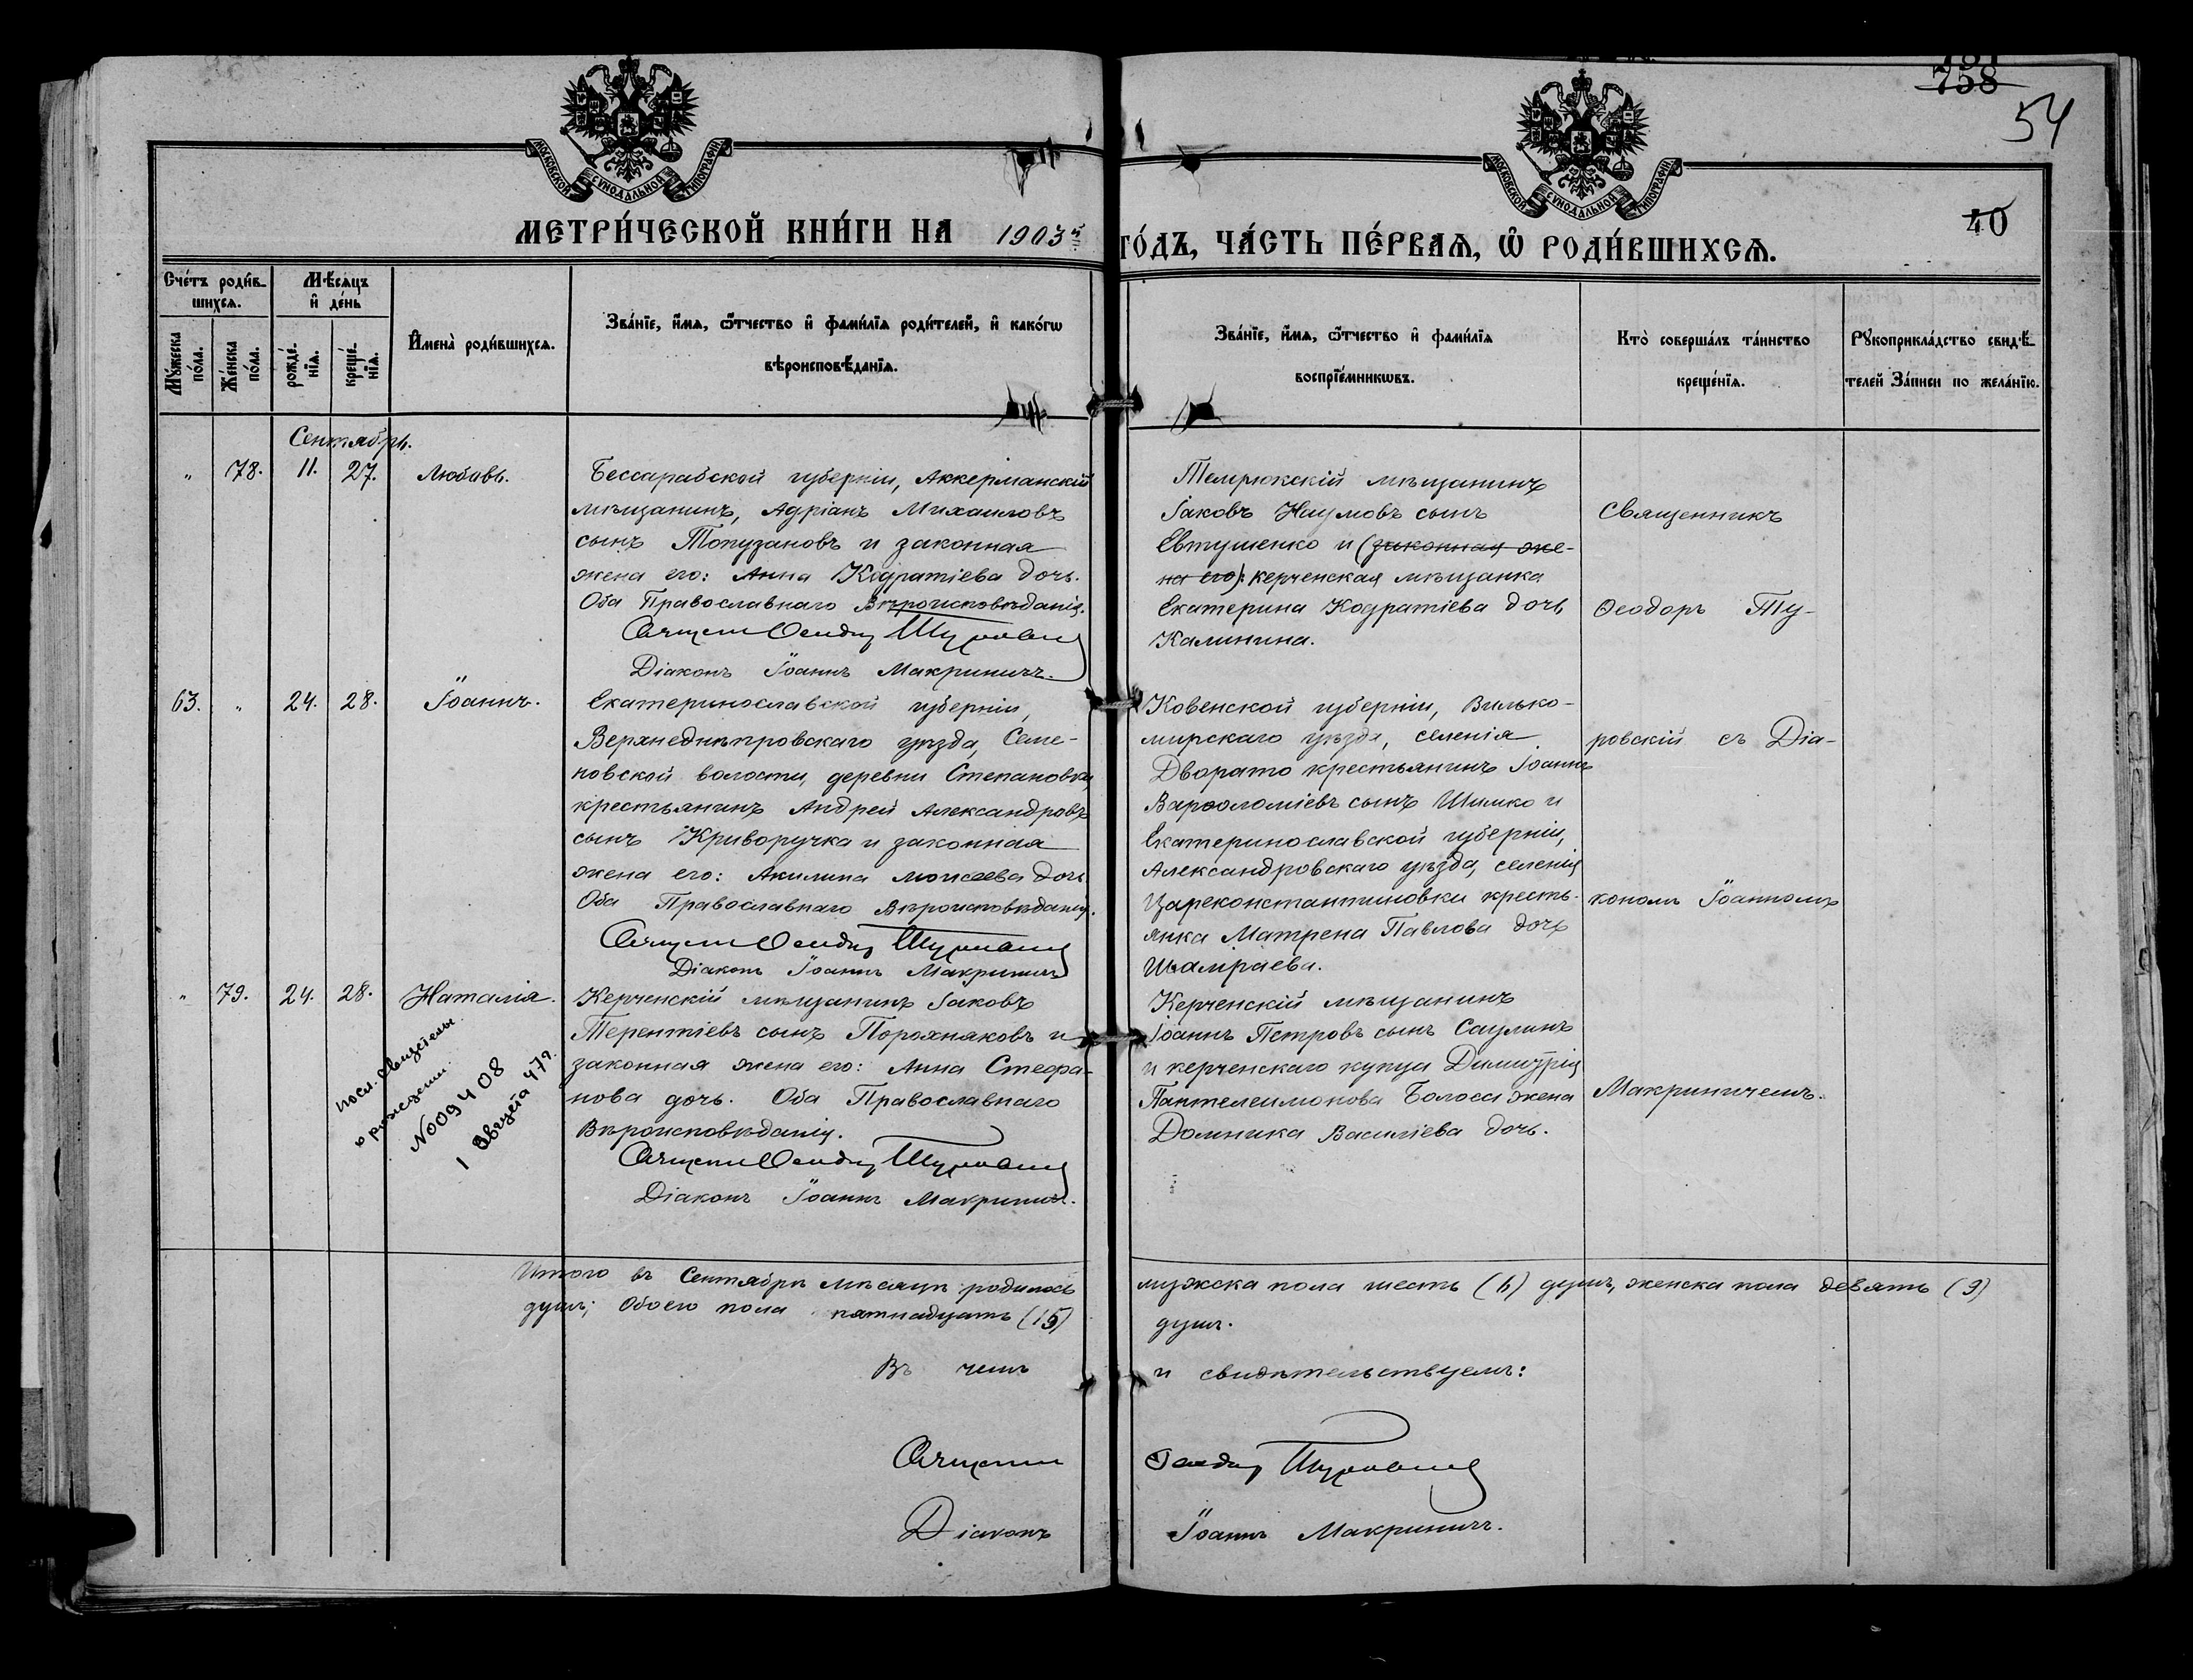 758
54
40
МОСКОВСКОЙ СѴНОДАЛЬНОЙ ТИПОГРАФІИ
МОСКОВСКОЙ СѴНОДАЛЬНОЙ ТИПОГРАФІИ
МЕТРИ́ЧЕСКОЙ КНИ́ГИ НА 1903й
ГО́ДЪ, ЧА́СТЬ ПЕ́РВАѦ, Ѽ РОДИ́ВШИХСѦ.
Сче́тъ роди́в-
шихсѧ.
Мѣ́сѧцъ
и҆ де́нь
Мꙋ́жеска
по́ла.
Же́нска
по́ла.
рожде́-
нїѧ.
креще́-
нїѧ.
И҆мена̀ роди́вшихсѧ.
Зва́нїе, и҆́мѧ, ѻ҆́тчество и҆ фами́лїѧ роди́телей, и҆ како́гѡ
вѣроисповѣ́данїѧ.
Зва́нїе, и҆́мѧ, ѻ҆́тчество и҆ фами́лїѧ
воспрїе́мникѡвъ.
Кто̀ соверша́лъ та́инство
креще́нїѧ.
Рꙋкоприкла́дство свидѣ́-
телей За́писи по жела́нїю.
Сентябрь.
" 78. 11. 27. Любовь.
Бессарабской губерніи, Аккерманскій
мѣщанинъ, Адріанъ Михаиловъ
сынъ Топузановъ и законная
жена его: Анна Кодратіева дочь.
Оба Православнаго Вѣроисповѣданія.
Діаконъ Іоаннъ Макриничъ.
Темрюкскій мѣщанинъ
Іаковъ Наумовъ сынъ
Евтушенко и (законная же-
на его): керченская мѣщанка
Екатерина Кодратіева дочь
Калинина.
Священникъ
Ѳеодоръ Ту-
63. " 24. 28. Іоаннъ.
Екатеринославской губерніи,
Верхнеднѣпровскаго уѣзда, Семе-
новской волости, деревни Степановки,
крестьянинъ Андрей Александровъ
сынъ Криворучка и законная
жена его: Акилина Моисеева дочь
Оба Православнаго Вѣроисповѣданія.
Діаконъ Іоаннъ Макриничъ
Ковенской губерніи, Вилько-
мирскаго уѣзда, селенія
Дворато крестьянинъ Іоаннъ
Варѳоломіевъ сынъ Шимко и
Екатеринославской губерніи,
Александровскаго уѣзда, селенія
Цареконстантиновки кресть-
янка Матрена Павлова дочь
Шамраева.
ровскій съ Діа-
кономъ Іоанномъ
" 79. 24. 28. Наталія.
Керченскій мѣщанинъ Іаковъ
Терентіевъ сынъ Порохняковъ и
законная жена его: Анна Стефа-
нова дочь. Оба Православнаго
Вѣроисповѣданія.
Діаконъ Іоаннъ Макриничъ.
о рождении
№ 009408
1 Августа 47 г.
Керченскій мѣщанинъ
Іоаннъ Петровъ сынъ Саулинъ
и керченскаго купца Димитрія
Пантелеимонова Болоси жена
Домника Василіева дочь.
Макриничемъ.
Итого въ Сентябрѣ мѣсяцѣ родилось
мужска пола шесть (6) душъ, женска пола девять (9)
душъ; Обоего пола пятнадцать (15)
душъ.
Въ чемъ
и свидѣтельствуемъ:
Діаконъ
Іоаннъ Макриничъ.